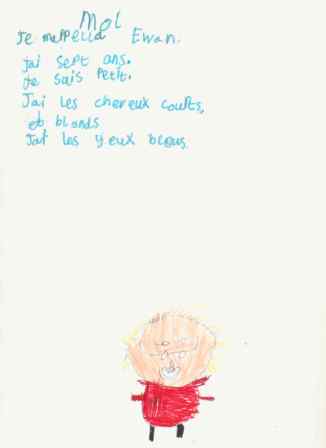 Moi
Je mappella Ewan.
jai sept ans.
Je sais Petit.
Jai les cheveux courts,
et blonds
Jai les yeux bleus